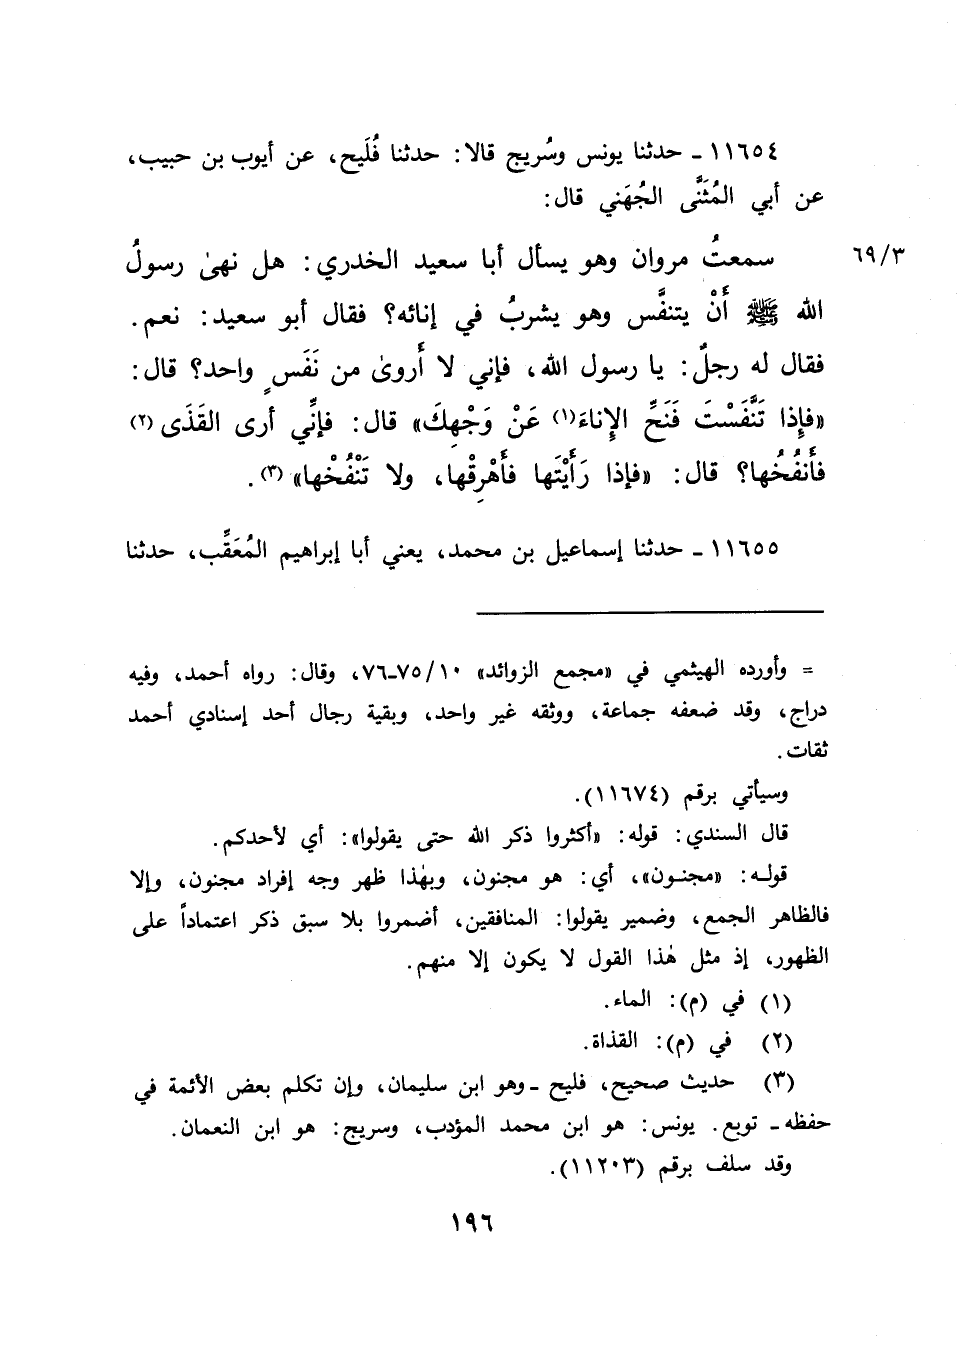 ١١٦٥٤ ـ حدثنا يونس وسُريج قالا: حدثنا فُلَيح، عن أيوب بن حبيب،
عن أبي المُثَنَّى الجُهَني قال:
٦٩/٣
سمعتُ مروان وهو يسأل أبا سعيد الخدري: هل نهىٰ رسولُ
الله ﷺ أَنْ يتنفَّس وهو يشربُ في إنائه؟ فقال أبو سعيد: نعم.
فقال له رجلٌ: يا رسول الله، فإني لا أَروىٰ من نَفَسٍ واحد؟ قال:
«فإِذا تَنَّفَسْتَ فَنَحِّ الإِناءَ(١) عَنْ وَجْهِكَ» قال: فإنِّي أرى القَذَى(٢)
فأَنفُخُها؟ قال: «فإذا رَأَيْتَها فأَهْرِقْها، ولا تَنْفُخْها»(٣).
١١٦٥٥ ـ حدثنا إسماعيل بن محمد، يعني أبا إبراهيم المُعَقِّب، حدثنا
= وأورده الهيثمي في «مجمع الزوائد» ١٠/ ٧٥ـ٧٦، وقال: رواه أحمد، وفيه
دراج، وقد ضعفه جماعة، ووثقه غير واحد، وبقية رجال أحد إسنادي أحمد
ثقات.
وسيأتي برقم (١١٦٧٤).
قال السندي: قوله: «أكثروا ذكر الله حتى يقولوا»: أي لأحدكم.
قولـه: «مجنـون»، أي: هو مجنون، وبهٰذا ظهر وجه إفراد مجنون، وإلا
فالظاهر الجمع، وضمير يقولوا: المنافقين، أضمروا بلا سبق ذكر اعتماداً على
الظهور، إذ مثل هٰذا القول لا يكون إلا منهم.
(١) في (م): الماء.
(٢) في (م): القذاة.
(٣) حديث صحيح، فليح ـ وهو ابن سليمان، وإن تكلم بعض الأئمة في
حفظه ـ توبع. يونس: هو ابن محمد المؤدب، وسريج: هو ابن النعمان.
وقد سلف برقم (١١٢٠٣).
١٩٦